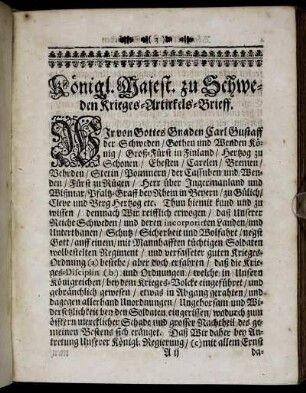 3
Königl. Majest. zu Schwe-
den Krieges-Artikels-Brieff.
WIr von Gottes Gnaden Carl Gustaff
der Schweden / Gothen und Wenden Kö-
nig / Groß-Fürst in Finland / Hertzog zu
Schonen / Ehesten / Carelen / Bremen /
Vehrden / Stetin / Pommern / der Cassuben und Wen-
den / Fürst zu Rügen / Herr über Ingermanland und
Wißmar / Pfaltz-Graff bey Rhein in Beyern / zu Gülich /
Cleve und Berg Hertzog etc. Thun hiemit kund und zu
wissen / demnach Wir reifflich erwogen / daß Unsere
Reiche Schweden / und deren incorporirten Landen / und
Unterthanen / Schutz / Sicherheit und Wolfahrt / negst
Gott / auff einem / mit Mannhafften tüchtigen Soldaten
wolbestelten Regiment / und verfassete guten Krieges-
Ordnung (a) bestehe / aber doch erfahren / daß die Krie-
ges-Disciplin (b) und Ordnungen / welche in Unsern
Königreichen / bey dem Krieges-Volcke eingeführet / und
gebräuchlich gewesen / etwas in Abgang gerahten / und
dagegen allerhand Unordnungen / Ungehorsam und Wi-
dersetzligkeit bey den Soldaten eingerissen / wodurch zum
öfftern mercklicher Schade und grosser Nachtheil des ge-
meinen Bestens sich eräuget. Daß Wir daher bey An-
tretung Unserer Königl. Regierung / (c) mit allem Ernst
A ij
da-